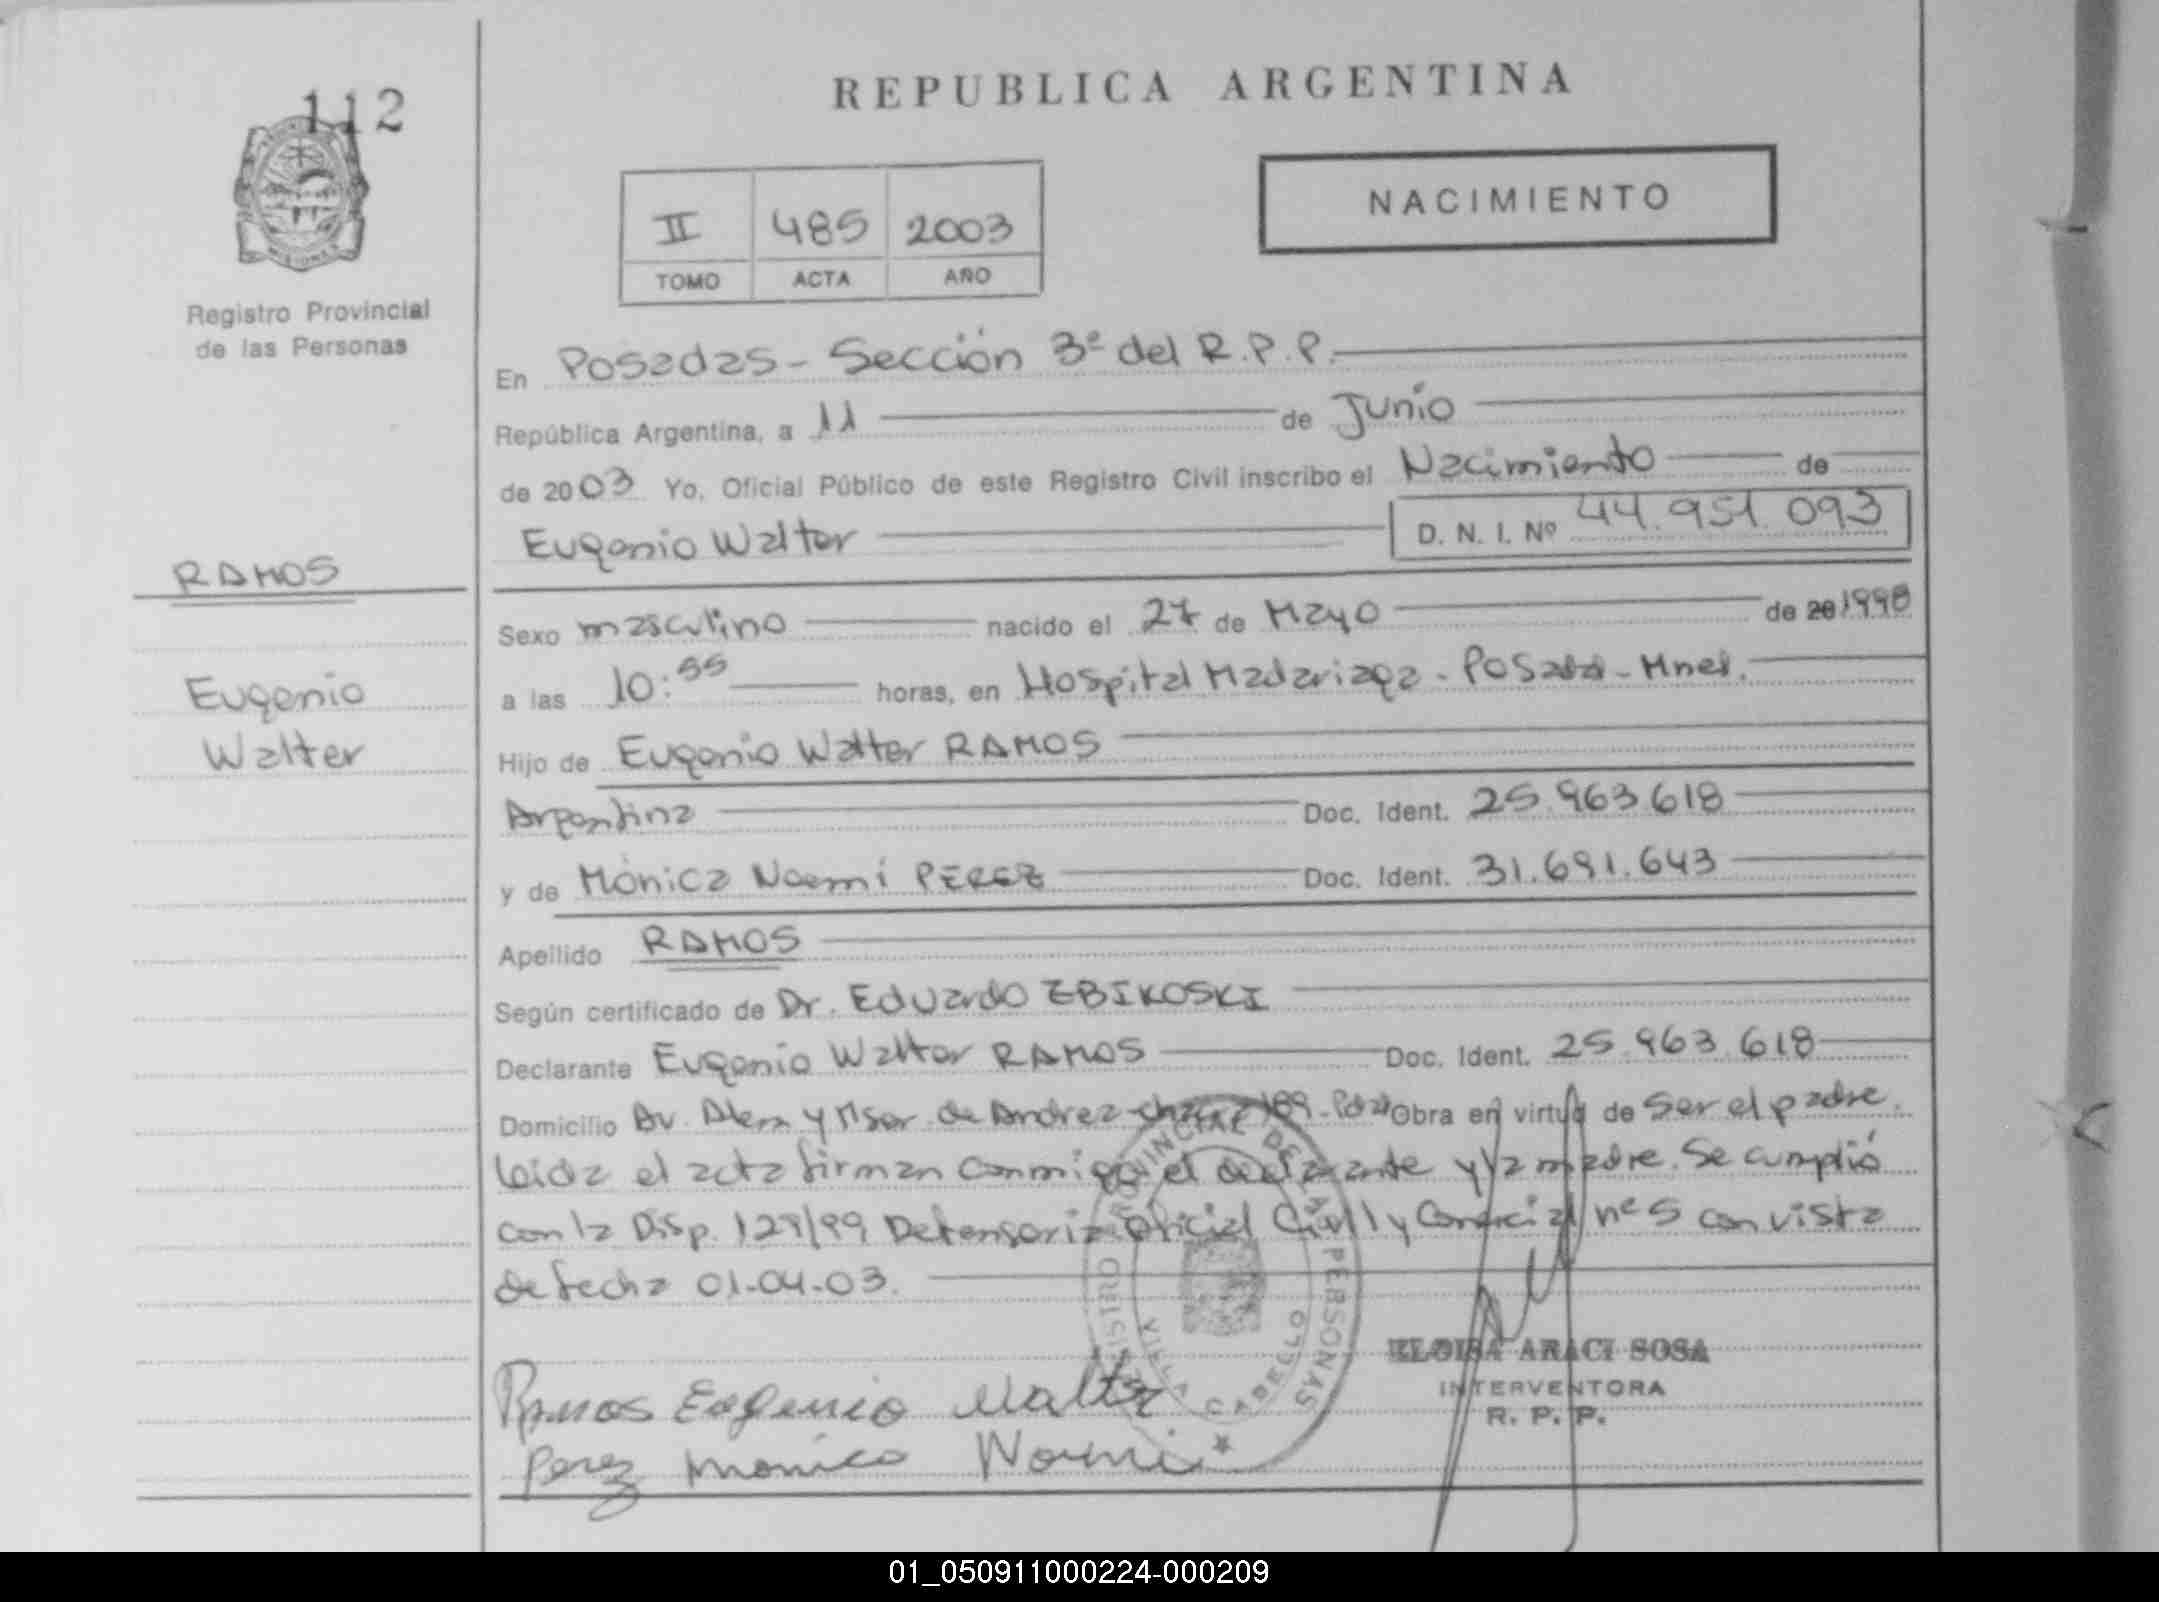 112
REPUBLICA ARGENTINA
NACIMIENTO
II 485 2003
TOMO ACTA AÑO
Registro Provincial
de las Personas
En Posadas - Sección 3º del R.P.P.
República Argentina, a 11 de Junio
de 2003 Yo, Oficial Público de este Registro Civil inscribo el Nacimiento de
Eugenio Walter D. N. I. Nº 44.951.093
RAMOS
Sexo masculino nacido el 27 de Mayo de 20 1998
Eugenio
a las 10:55 horas, en Hospital Madariaga - Posadas - Mnes.
Walter
Hijo de Eugenio Walter RAMOS
Argentina Doc. Ident. 25.963.618
y de Mónica Noemí PEREZ Doc. Ident. 31.691.643
Apellido RAMOS
Según certificado de Dr. Eduardo ZBIKOSKI
Declarante Eugenio Walter RAMOS Doc. Ident. 25.963.618
Domicilio Av. Alem y de 189 - Obra en virtud de ser el padre.
Leida el acta firman conmigo el declarante y la madre. Se cumplió
con la Disp. 129/99 Defensoria Oficial Civil y Comercial nº 5 con vista
de fecha 01-04-03.
REGISTRO PROVINCIAL DE LAS PERSONAS
VILLA CABELLO
ELOISA ARACI SOSA
INTERVENTORA
R. P. P.
Ramos Eugenio Walter
Perez Monica Noemi
01_050911000224-000209